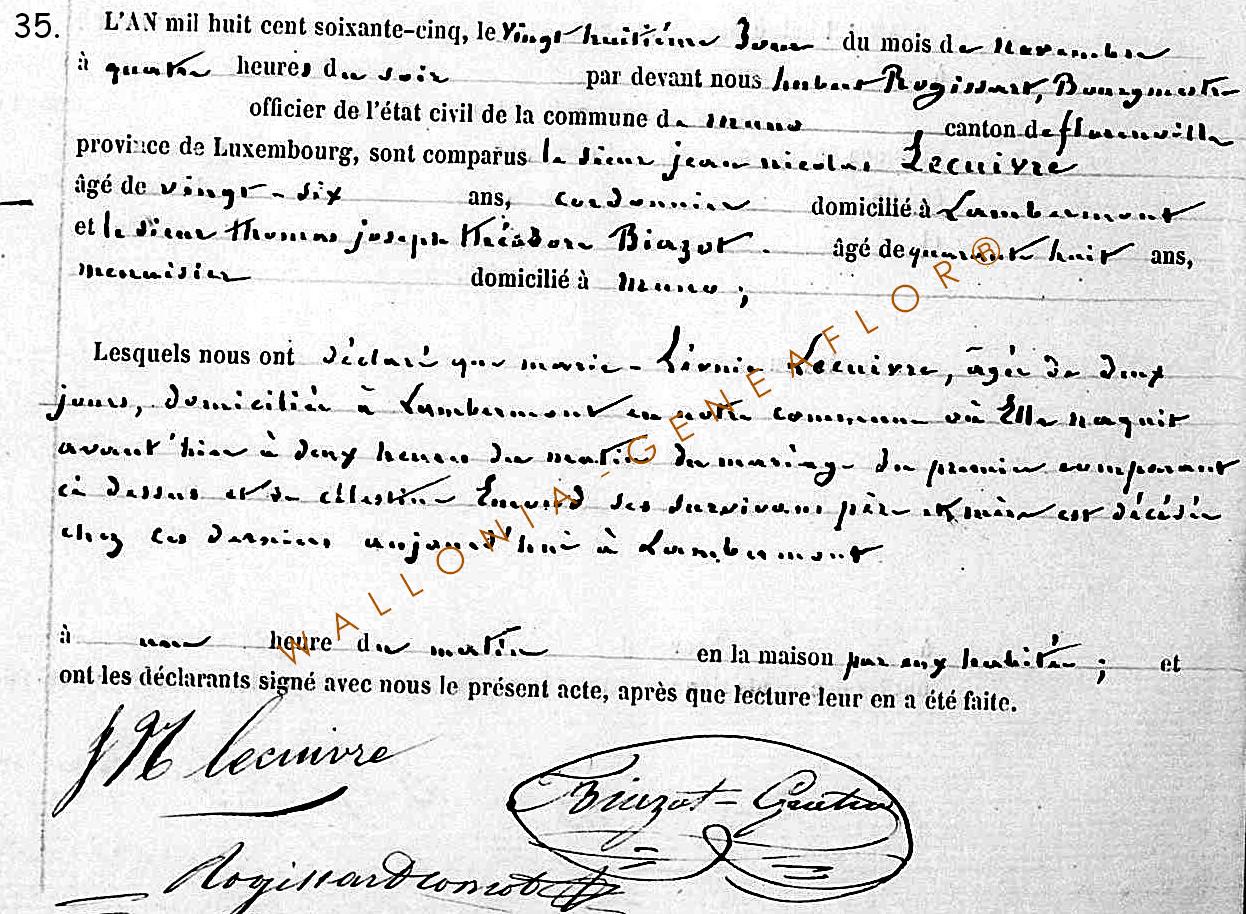 35. L'AN mil huit cent soixante-cinq, le vingt huitième Jour du mois de novembre
à quatre heures du soir par devant nous hubert Rogissart, Bourgmestre
officier de l'état civil de la commune de muno canton de florenville
province de Luxembourg, sont comparus le sieur jean nicolas Lecuivre
âgé de vingt-six ans, cordonnier domicilié à Lambermont
et le sieur thomas joseph théodore Biazot. âgé de quarante huit ans,
menuisier domicilié à muno ;
Lesquels nous ont déclaré que marie-Léonie Lecuivre, âgée de deux
jours, domiciliée à Lambermont en notre commune où Elle naquit
avant'hier à deux heures du matin du mariage du premier comparant
ci dessus et de célestine ses survivans père et mère est décédée
chez ces derniers aujourd'hui à Lambermont
à une heure du matin en la maison par eux habitée ; et
ont les déclarants signé avec nous le présent acte, après que lecture leur en a été faite.
JN lecuivre
Biazot-
Rogissart
WALLONIA-GENEAFLOR®